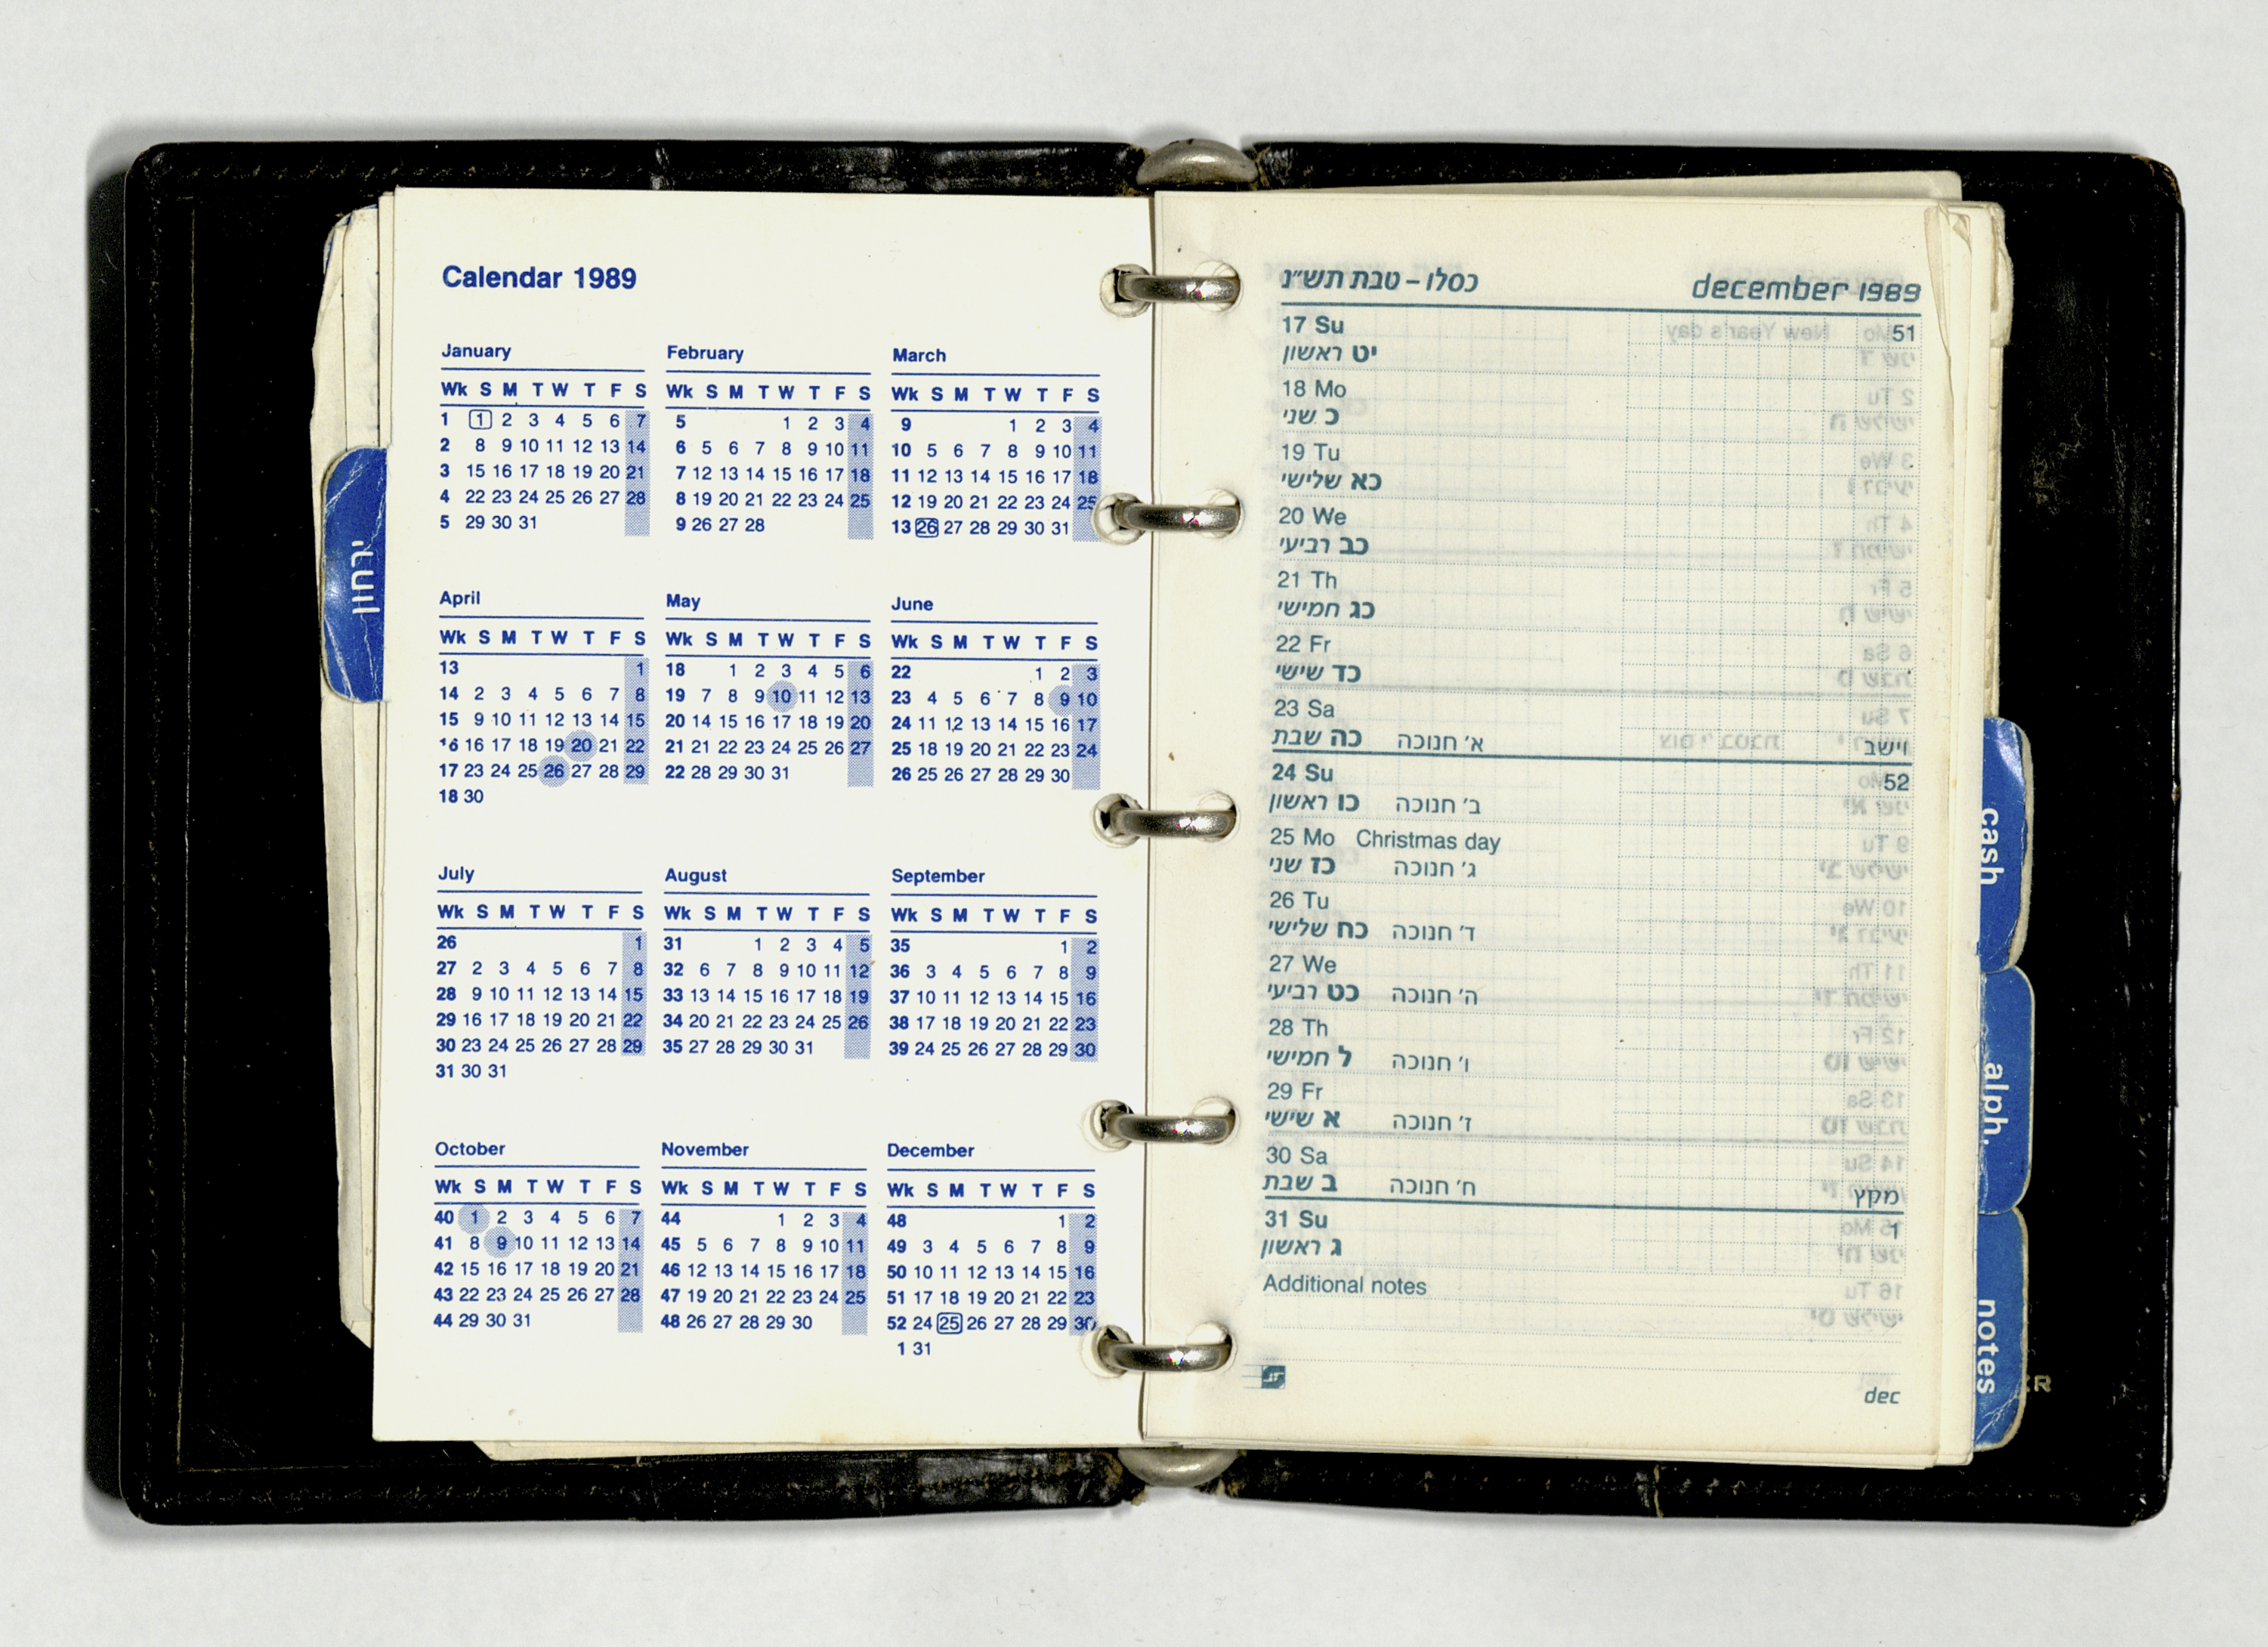 Calendar 1989
January February March
Wk S M T W T F S Wk S M T W T F S Wk S M T W T F S
1 1 2 3 4 5 6 7 5 1 2 3 4 9 1 2 3 4
2 8 9 10 11 12 13 14 6 5 6 7 8 9 10 11 10 5 6 7 8 9 10 11
3 15 16 17 18 19 20 21 7 12 13 14 15 16 17 18 11 12 13 14 15 16 17 18
4 22 23 24 25 26 27 28 8 19 20 21 22 23 24 25 12 19 20 21 22 23 24 25
5 29 30 31 9 26 27 28 13 26 27 28 29 30 31
April May June
Wk S M T W T F S Wk S M T W T F S Wk S M T W T F S
13 1 18 1 2 3 4 5 6 22 1 2 3
14 2 3 4 5 6 7 8 19 7 8 9 10 11 12 13 23 4 5 6 7 8 9 10
15 9 10 11 12 13 14 15 20 14 15 16 17 18 19 20 24 11 12 13 14 15 16 17
16 16 17 18 19 20 21 22 21 21 22 23 24 25 26 27 25 18 19 20 21 22 23 24
17 23 24 25 26 27 28 29 22 28 29 30 31 26 25 26 27 28 29 30
18 30
July August September
Wk S M T W T F S Wk S M T W T F S Wk S M T W T F S
26 1 31 1 2 3 4 5 35 1 2
27 2 3 4 5 6 7 8 32 6 7 8 9 10 11 12 36 3 4 5 6 7 8 9
28 9 10 11 12 13 14 15 33 13 14 15 16 17 18 19 37 10 11 12 13 14 15 16
29 16 17 18 19 20 21 22 34 20 21 22 23 24 25 26 38 17 18 19 20 21 22 23
30 23 24 25 26 27 28 29 35 27 28 29 30 31 39 24 25 26 27 28 29 30
31 30 31
October November December
Wk S M T W T F S Wk S M T W T F S Wk S M T W T F S
40 1 2 3 4 5 6 7 44 1 2 3 4 48 1 2
41 8 9 10 11 12 13 14 45 5 6 7 8 9 10 11 49 3 4 5 6 7 8 9
42 15 16 17 18 19 20 21 46 12 13 14 15 16 17 18 50 10 11 12 13 14 15 16
43 22 23 24 25 26 27 28 47 19 20 21 22 23 24 25 51 17 18 19 20 21 22 23
44 29 30 31 48 26 27 28 29 30 52 24 25 26 27 28 29 30
1 31
יומן
כסלו – טבת תש״נ december 1989
17 Su 51
יט ראשון
18 Mo
כ שני
19 Tu
כא שלישי
20 We
כב רביעי
21 Th
כג חמישי
22 Fr
כד שישי
23 Sa
כה שבת א׳ חנוכה וישב
24 Su 52
כו ראשון ב׳ חנוכה
25 Mo Christmas day
כז שני ג׳ חנוכה
26 Tu
כח שלישי ד׳ חנוכה
27 We
כט רביעי ה׳ חנוכה
28 Th
ל חמישי ו׳ חנוכה
29 Fr
א שישי ז׳ חנוכה
30 Sa
ב שבת ח׳ חנוכה מקץ
31 Su 1
ג ראשון
Additional notes
dec
cash
alph.
notes